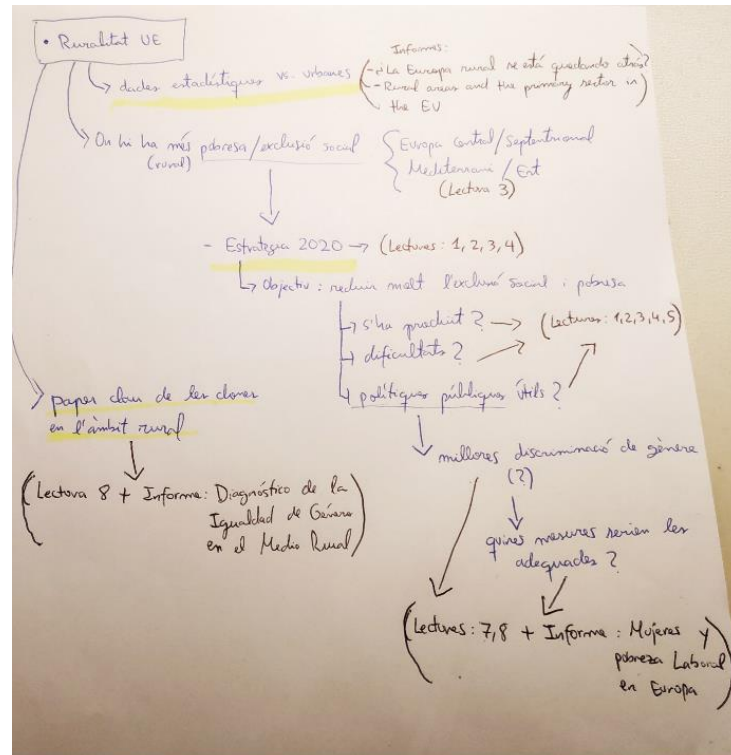 • Ruralitat UE
Informes:
→ dades estadístiques vs. urbanes
- ¿La Europa rural se está quedando atrás?
- Rural areas and the primary sector in
the EU
→ On hi ha més pobresa/exclusió social
(rural)
Europa central/septentrional
Mediterrani / Est
(Lectura 3)
- Estratègia 2020 → (Lectures: 1, 2, 3, 4)
→ Objectiu: reduir molt l'exclusió social i pobresa
→ s'ha produït? → (Lectures: 1,2,3,4,5)
→ dificultats?
→ polítiques públiques útils?
→ paper clau de les dones
en l'àmbit rural
millores discriminació de gènere
(?)
(Lectura 8 + Informe: Diagnóstico de la
Igualdad de Género
en el Medio Rural)
quines mesures serien les
adequades?
(Lectures: 7,8 + Informe: Mujeres y
pobreza Laboral
en Europa)